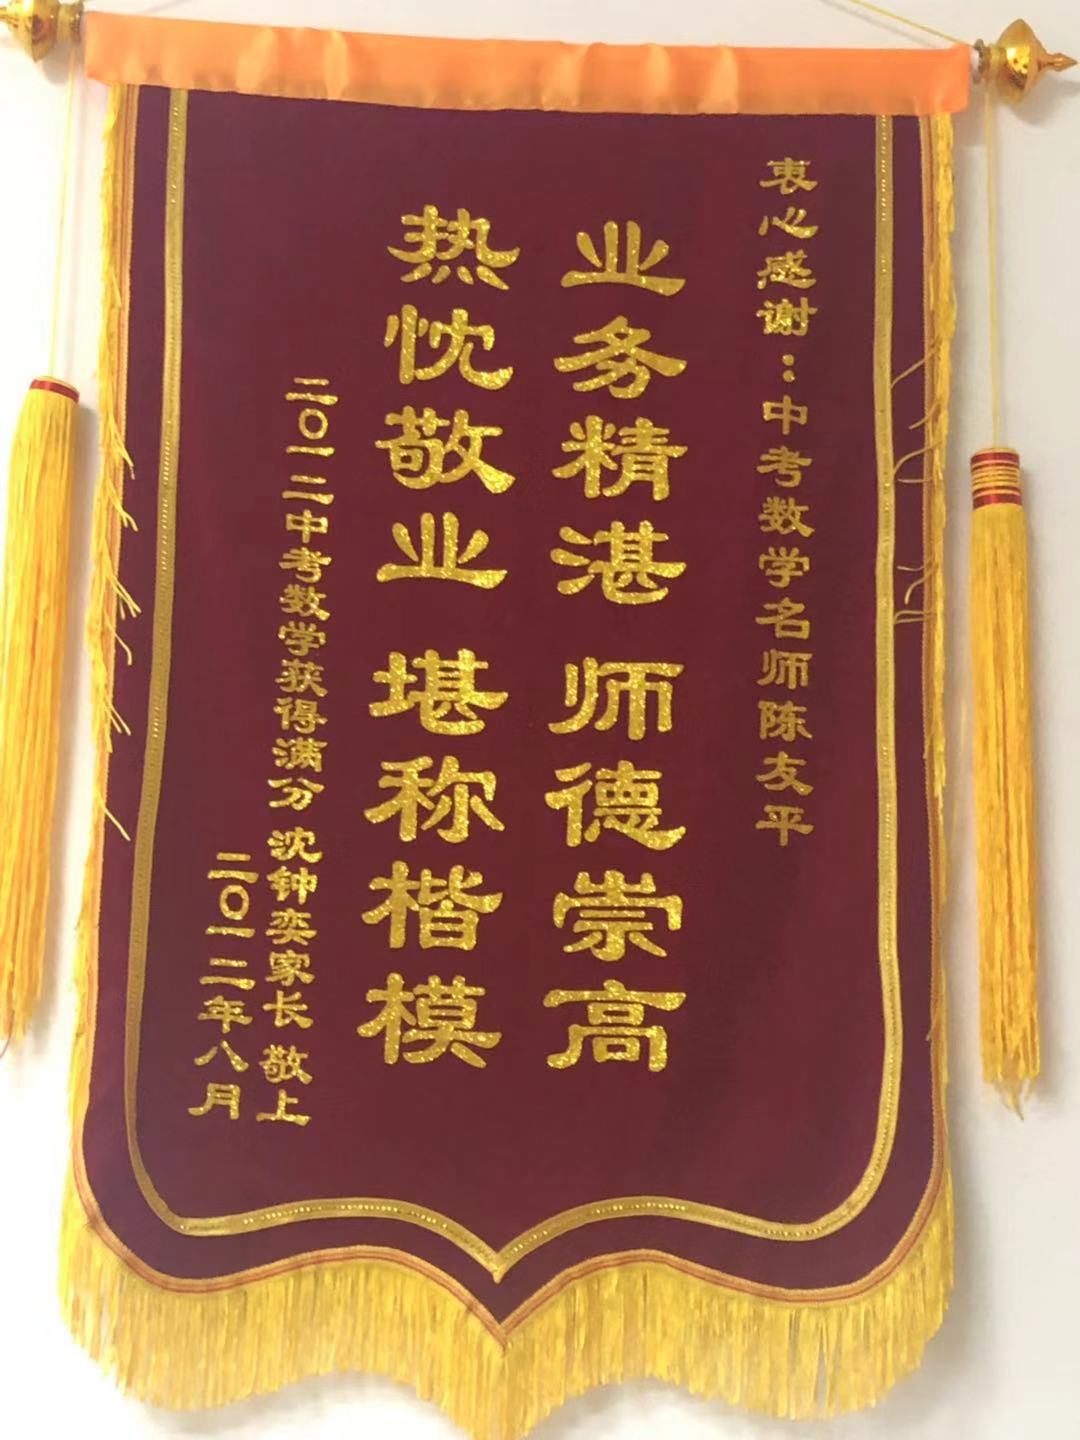 衷心感谢：中考数学名师陈友平
业务精湛 师德崇高
热忱敬业 堪称楷模
二〇一二中考数学获得满分 沈钟奕家长 敬上
二〇一二年八月